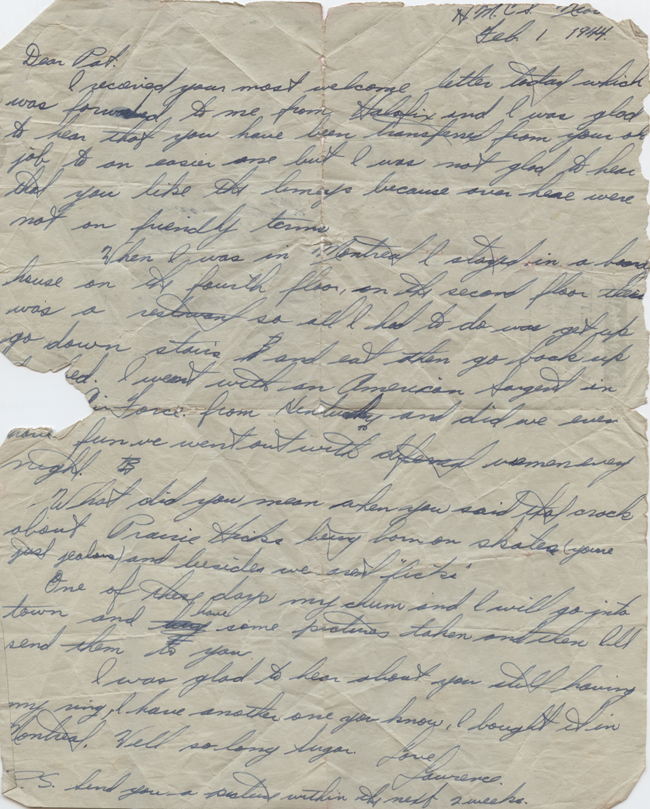 H.M.C.S.
Feb. 1 1944.
Dear Pat.
I received your most welcome letter today which
was forwarded to me from Halafix and I was glad
to hear that you have been transfered from your ol
job to an easier one but I was not glad to hear
that you like the limeys because over here were
not on friendly terms
When I was in Montreal I stayed in a board
house on the fourth floor, on the second floor there
was a resturant so all I had to do was get up
go down stairs and eat then go back up
bed. I went with an American sargent in
Air Force. from Kentucky and did we ever
have fun we went out with different women every
night.
What did you mean when you said that crack
about Prairie Hicks being born on skates (youre
just jealous) and besides we arent "hicks"
One of these days my chum and I will go into
town and have some pictures taken and then Ill
send them to you
I was glad to hear about you still having
my ring, I have another one you know, I bought it in
Montreal. Well so long Sugar. Love
Lawrence.
P.S. Send you a picture within the next 2 weeks.